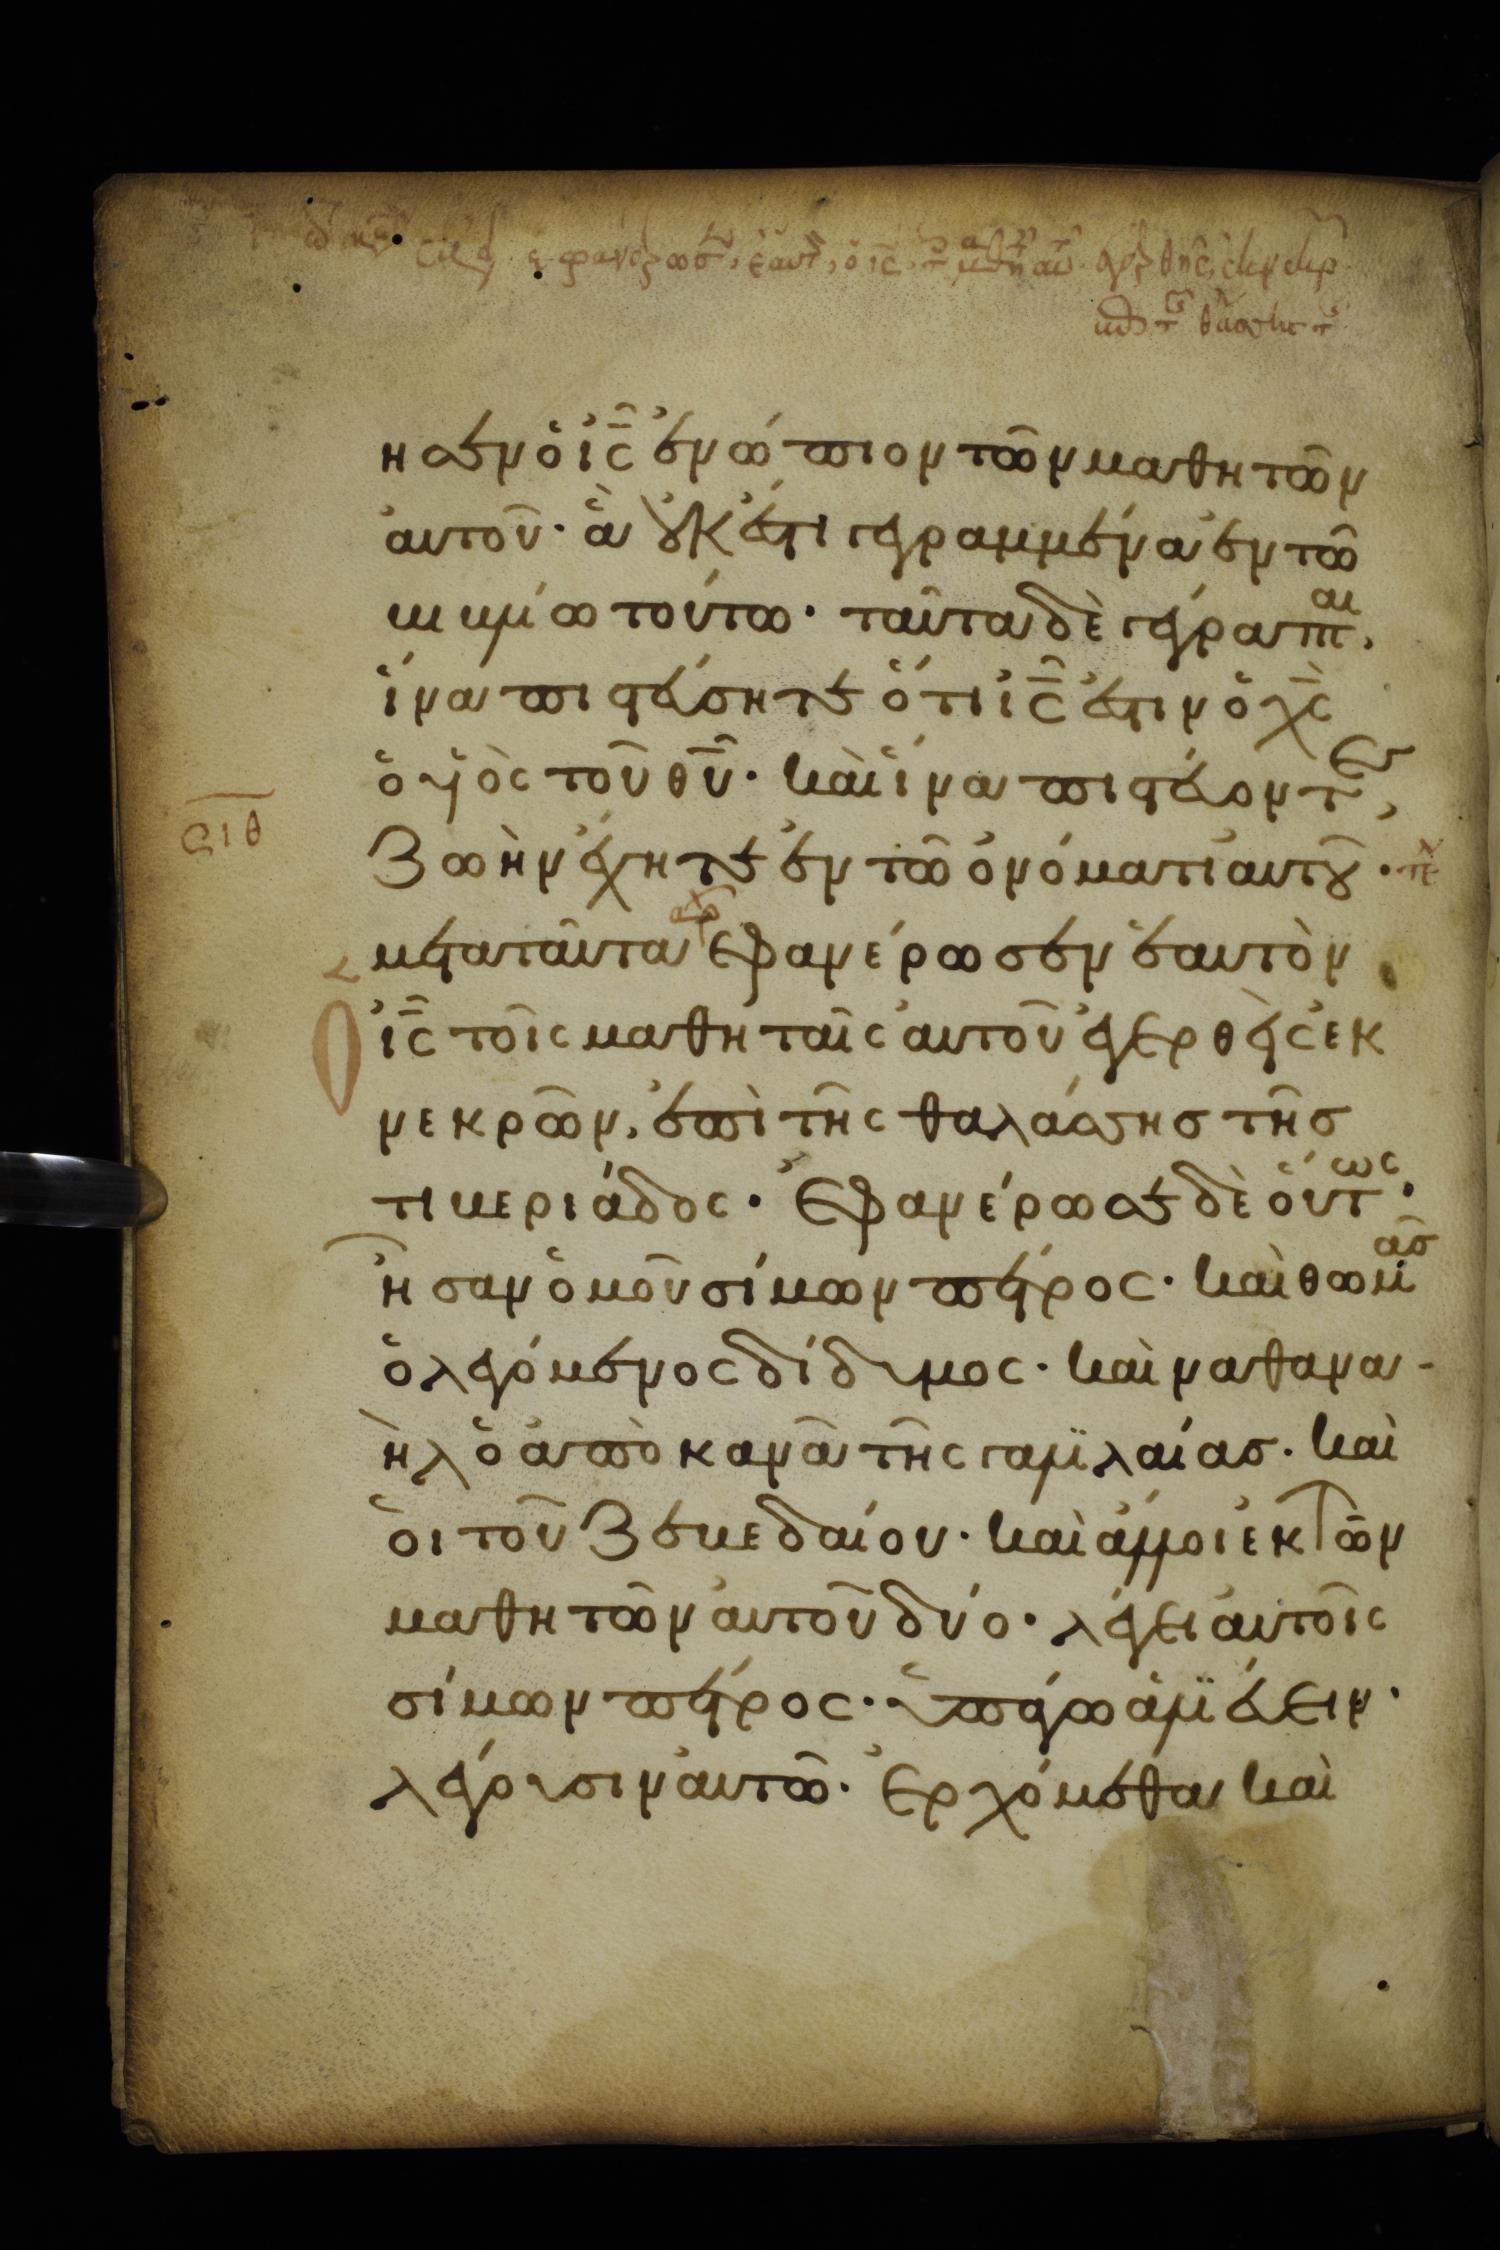 ἐφανέρωσεν ἑαυτ ὁ ις
η σεν ὁ ἰς ἐνώπιον τῶν μαθητῶν
ἀυτοῦ· ἃ οὐκ έστι γεγραμμένα ἐν τῶ
βιβλίω τούτω· ταῦτα δὲ γέγραπται,
ἵνα πιστεύσητε ὅτι ἰς ἐστιν ὁ χς
ὁ υἱὸς τοῦ θυ· καὶ ἵνα πιστεύοντες,
ζωὴν ἔχητε ἐν τῶ ὀνόματι ἀυτοῦ·
σιθ
μετα ταῦτα ἐφανέρωσεν ἑαυτὸν
ἰς τοῖς μαθηταῖς ἀυτοῦ ἐγερθεὶς ἐκ
νεκρῶν, ἐπὶ τῆς θαλάσσης τῆς
τιβεριάδος· ἐφανέρωσε δὲ ὅυτως·
ἦσαν ὁμοῦ σίμων πέτρος· καὶ θωμᾶς
ὁ λεγόμενος δίδυμος· καὶ ναθανα-
ὴλ ὁ ἀπὸ κανᾶ τῆς γαλιλαίας· καὶ
ὁι τοῦ ζεβεδαίου· καὶ ἄλλοι ἐκ τῶν
μαθητῶν ἀυτοῦ δύο· λέγει ἀυτοῖς
σίμων πέτρος· ὑπάγω ἁλιεύειν·
λέγουσιν ἀυτῶ· ἐρχόμεθα καὶ